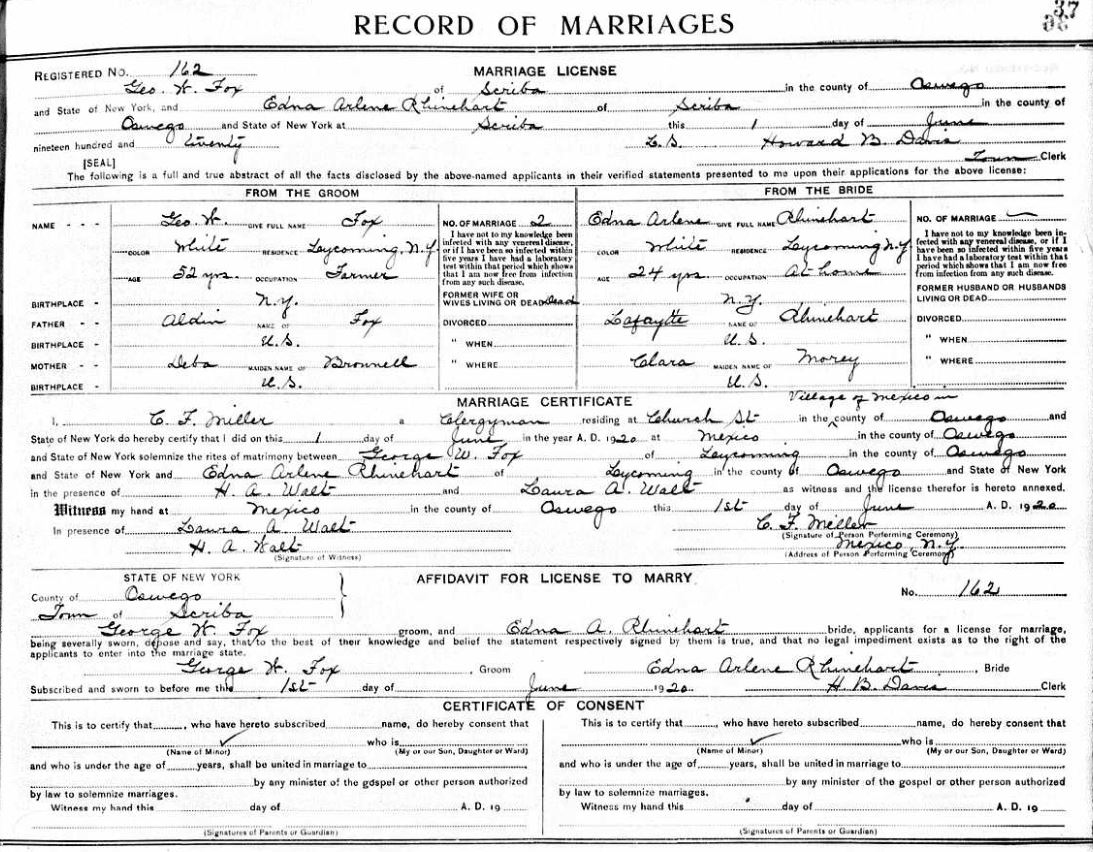 RECORD OF MARRIAGES
37
REGISTERED NO. 162 MARRIAGE LICENSE
Geo. W. Fox of Scriba in the county of Oswego
and State of New York, and Edna Arlene Rhinehart of Scriba in the county of
Oswego and State of New York at Scriba this 1 day of June
nineteen hundred and twenty L.S. Howard B. Davis
[SEAL] Town Clerk
The following is a full and true abstract of all the facts disclosed by the above-named applicants in their verified statements presented to me upon their applications for the above license:
FROM THE GROOM FROM THE BRIDE
NAME - - - Geo. W. GIVE FULL NAME Fox NO. OF MARRIAGE 2 Edna Arlene GIVE FULL NAME Rhinehart NO. OF MARRIAGE —
COLOR White RESIDENCE Lycoming, N.Y. I have not to my knowledge been infected with any venereal disease, or if I have been so infected within five years I have had a laboratory test within that period which shows that I am now free from infection from any such disease. COLOR White RESIDENCE Lycoming N.Y. I have not to my knowledge been infected with any venereal disease, or if I have been so infected within five years I have had a laboratory test within that period which shows that I am now free from infection from any such disease.
AGE 52 yrs. OCCUPATION Farmer AGE 24 yrs. OCCUPATION At home
BIRTHPLACE - N.Y. FORMER WIFE OR WIVES LIVING OR DEAD Dead N.Y. FORMER HUSBAND OR HUSBANDS LIVING OR DEAD
FATHER - - Aldin NAME OF Fox DIVORCED Lafaytte NAME OF Rhinehart DIVORCED
BIRTHPLACE - U.S. " WHEN U.S. " WHEN
MOTHER - - Deba MAIDEN NAME OF Brownell " WHERE Clara MAIDEN NAME OF Morey " WHERE
BIRTHPLACE - U.S. U.S.
MARRIAGE CERTIFICATE Village of Mexico in
I, C. F. Miller a Clergyman residing at Church St in the county of Oswego and
State of New York do hereby certify that I did on this 1 day of June in the year A. D. 1920 at Mexico in the county of Oswego
and State of New York solemnize the rites of matrimony between George W. Fox of Lycoming in the county of Oswego
and State of New York and Edna Arlene Rhinehart of Lycoming in the county of Oswego and State of New York
in the presence of H. A. Walt and Laura A. Walt as witness and the license therefor is hereto annexed.
Witness my hand at Mexico in the county of Oswego this 1st day of June A. D. 1920
In presence of Laura A Walt C. F. Miller
(Signature of Person Performing Ceremony)
H. A. Walt Mexico, N.Y.
(Signature of Witness) (Address of Person Performing Ceremony)
STATE OF NEW YORK AFFIDAVIT FOR LICENSE TO MARRY
County of Oswego No. 162
Town of Scriba
George W. Fox groom, and Edna A. Rhinehart bride, applicants for a license for marriage,
being severally sworn, depose and say, that to the best of their knowledge and belief the statement respectively signed by them is true, and that no legal impediment exists as to the right of the
applicants to enter into the marriage state.
George W. Fox, Groom Edna Arlene Rhinehart, Bride
Subscribed and sworn to before me this 1st day of June 1920 H. B. Davis Clerk
CERTIFICATE OF CONSENT
This is to certify that, who have hereto subscribed name, do hereby consent that This is to certify that, who have hereto subscribed name, do hereby consent that
who is who is
(Name of Minor) (My or our Son, Daughter or Ward) (Name of Minor) (My or our Son, Daughter or Ward)
and who is under the age of years, shall be united in marriage to and who is under the age of years, shall be united in marriage to
by any minister of the gospel or other person authorized by any minister of the gospel or other person authorized
by law to solemnize marriages. by law to solemnize marriages.
Witness my hand this day of A. D. 19 Witness my hand this day of A. D. 19
(Signatures of Parents or Guardian) (Signatures of Parents or Guardian)